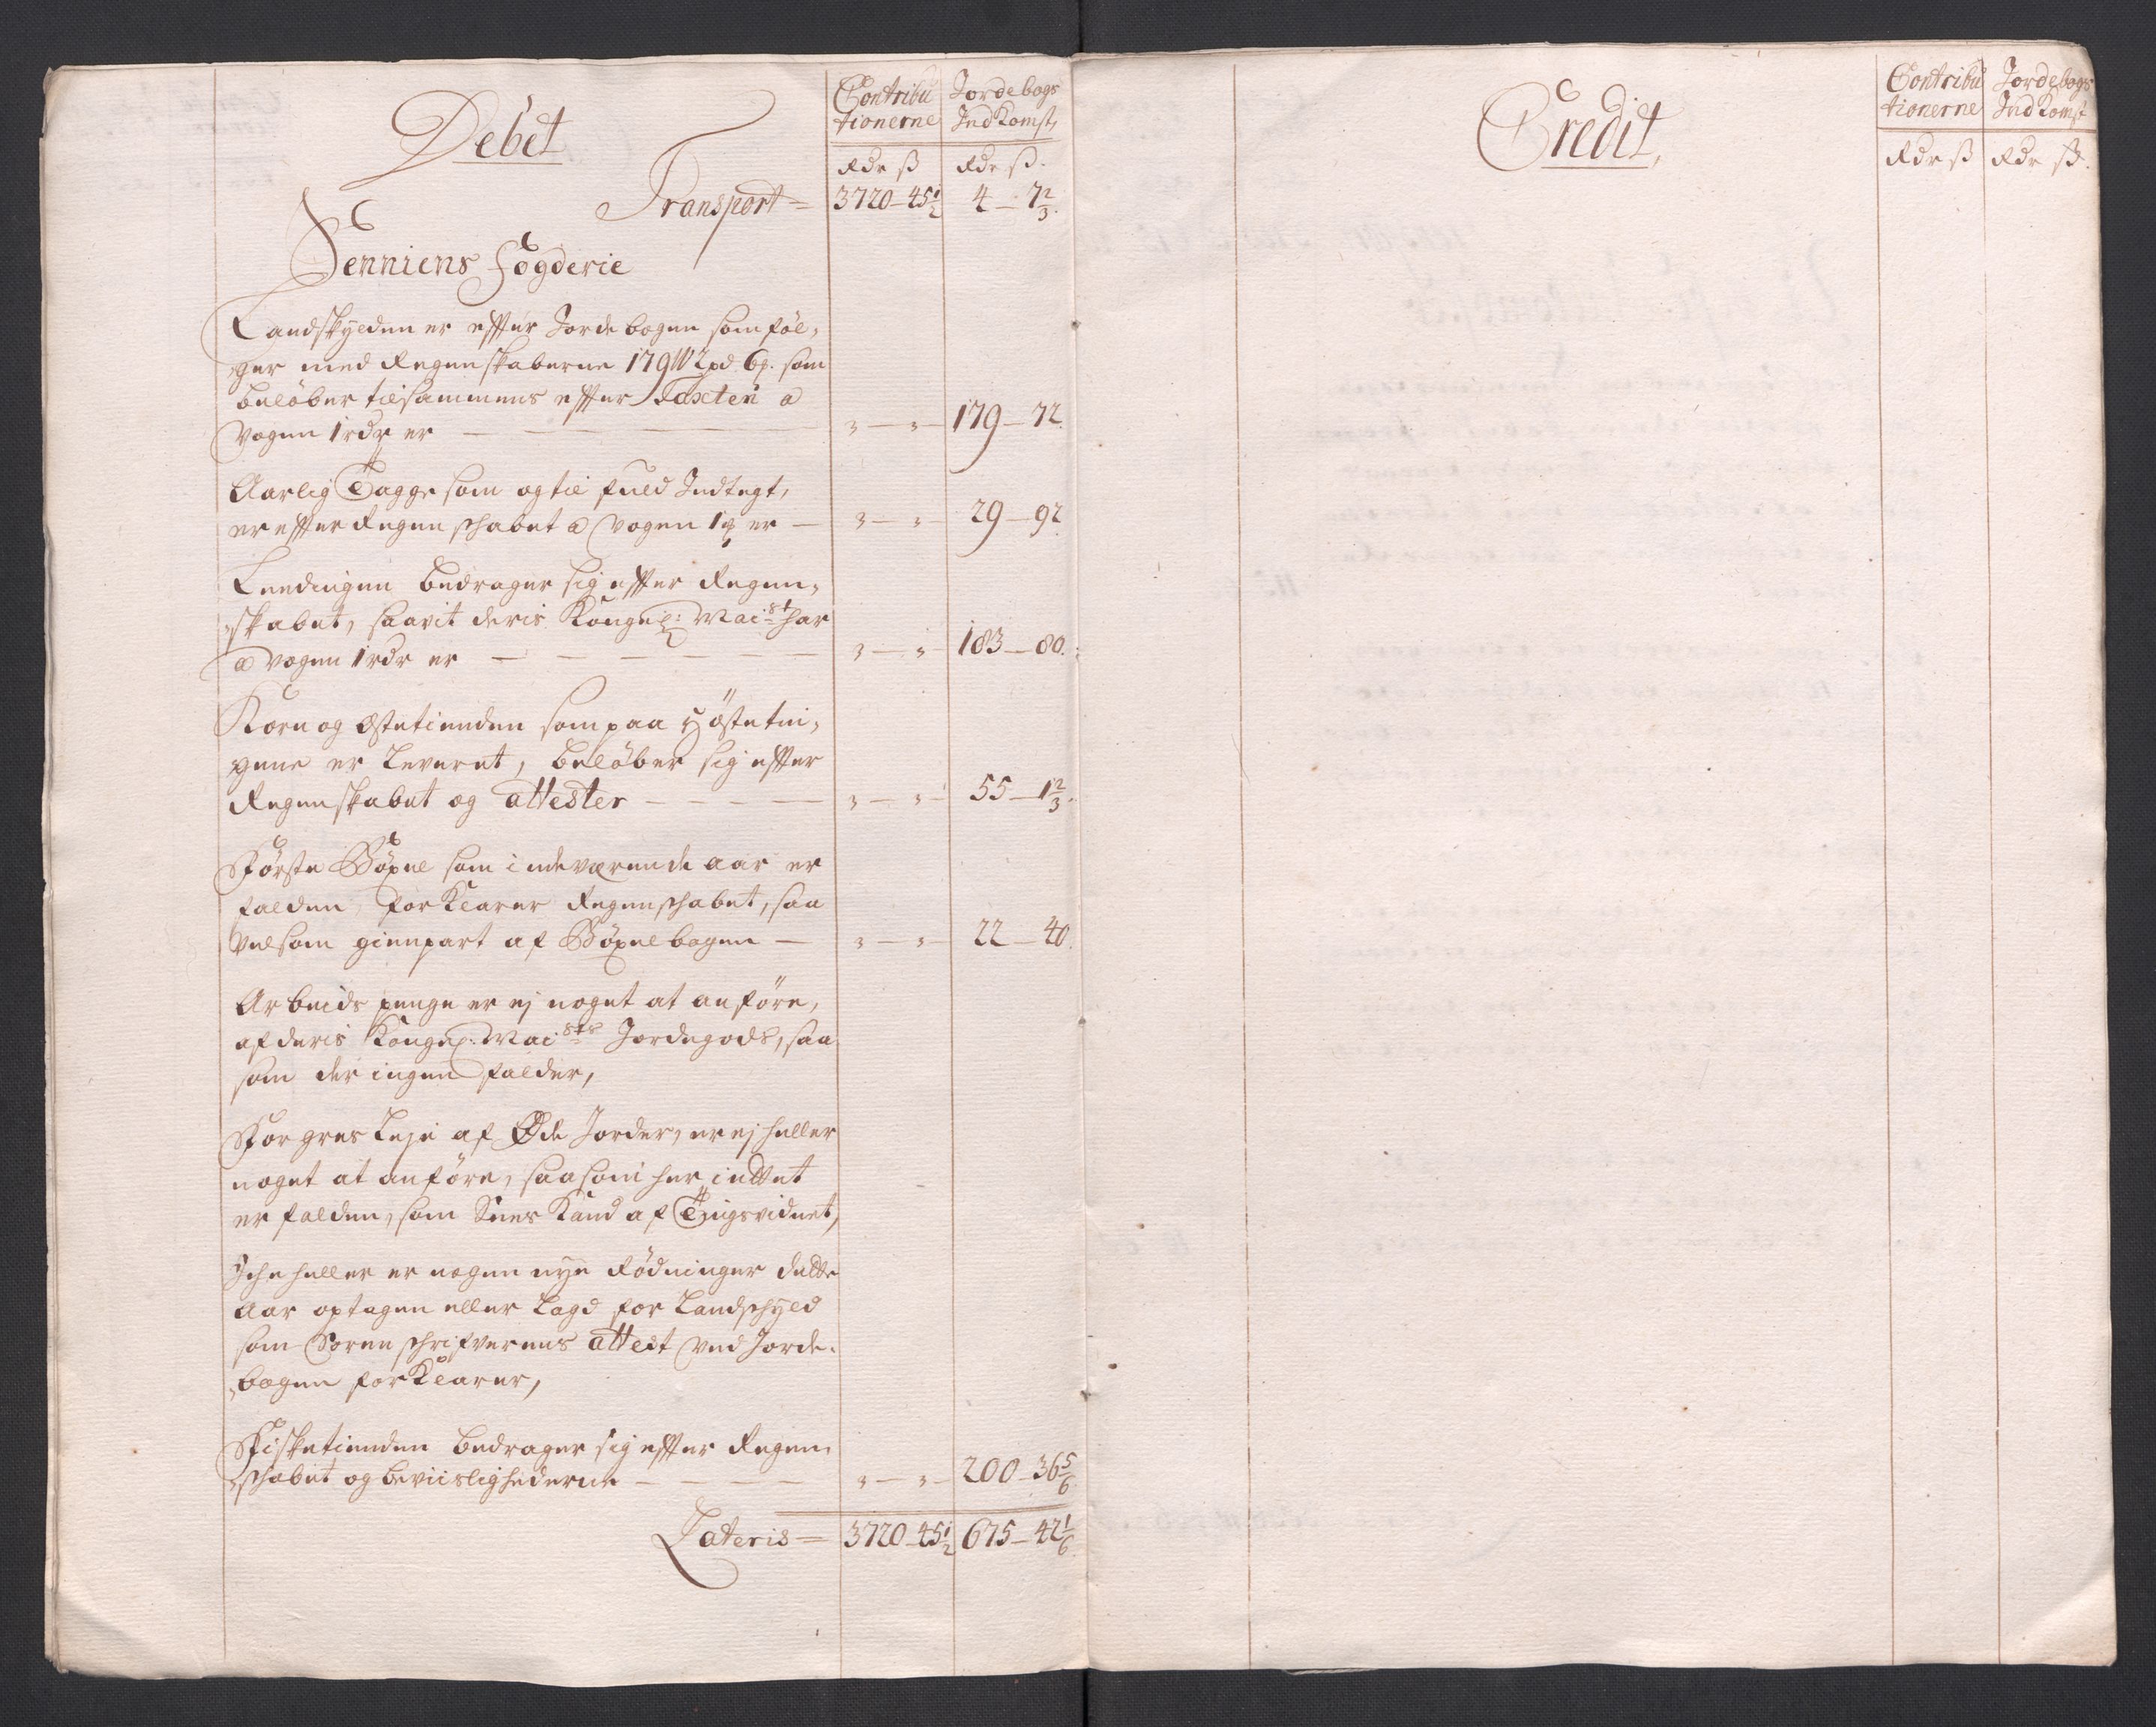 Debet
Contribu Jordebogs
tionerne IndKomst,
Rdr ß Rdr ß.
Transport = 3720 - 45 1/2 4 - 7 2/3.
Senniens Fogderie
Landskylden er effter Jordebogen som föl,
ger med Regenskaberne 179 W 2 pd 6 p. som
belöber tilsammens effter Taxten a
vogen 1 rdr er — — — — 179 - 72.
Aarlig Tagge som og til fuld Indtegt,
er effter Regenschabet a vogen 1 er — 29 - 92.
Leedingen bedrager sig effter Regen,
skabet, saavit deris Kongel: Mai:st har
a vogen 1 rdr er — — — — 183 - 80.
Korn og Ostetienden som paa Höstetin,
gene er leveret, belöber sig effter
Regenskabet og attester — — — — 55 - 1 2/3.
Första Böxel som indeværende aar er
falden, forKlarer Regenschabet, saa
velsom gienpart af Böxelbogen — 22 - 40.
Arbeids penge er ej noget at anföre,
af deris Kongel: Mai:sts Jordegods, saa
som der ingen falder,
For gres Leje af Øde Jorder, er ej heller
noget at anföre, saasom her indtet
er falden, som Sees Kand af Tingsvidnet,
Iche heller er nogen nye Rödninger dette
aar optagen eller Lagd for Landschyld
som Sorenschrifverens attest ved Jorde,
bogen forKlarer,
Fisketienden bedrager sig effter Regen,
schabet og beviislighederne — — — 200 - 36 5/6
Lateris = 3720 - 45 1/2 675 - 42 1/6
Credit,
Contribu Jordebogs
tionerne IndKomst
Rdr ß Rdr ß.